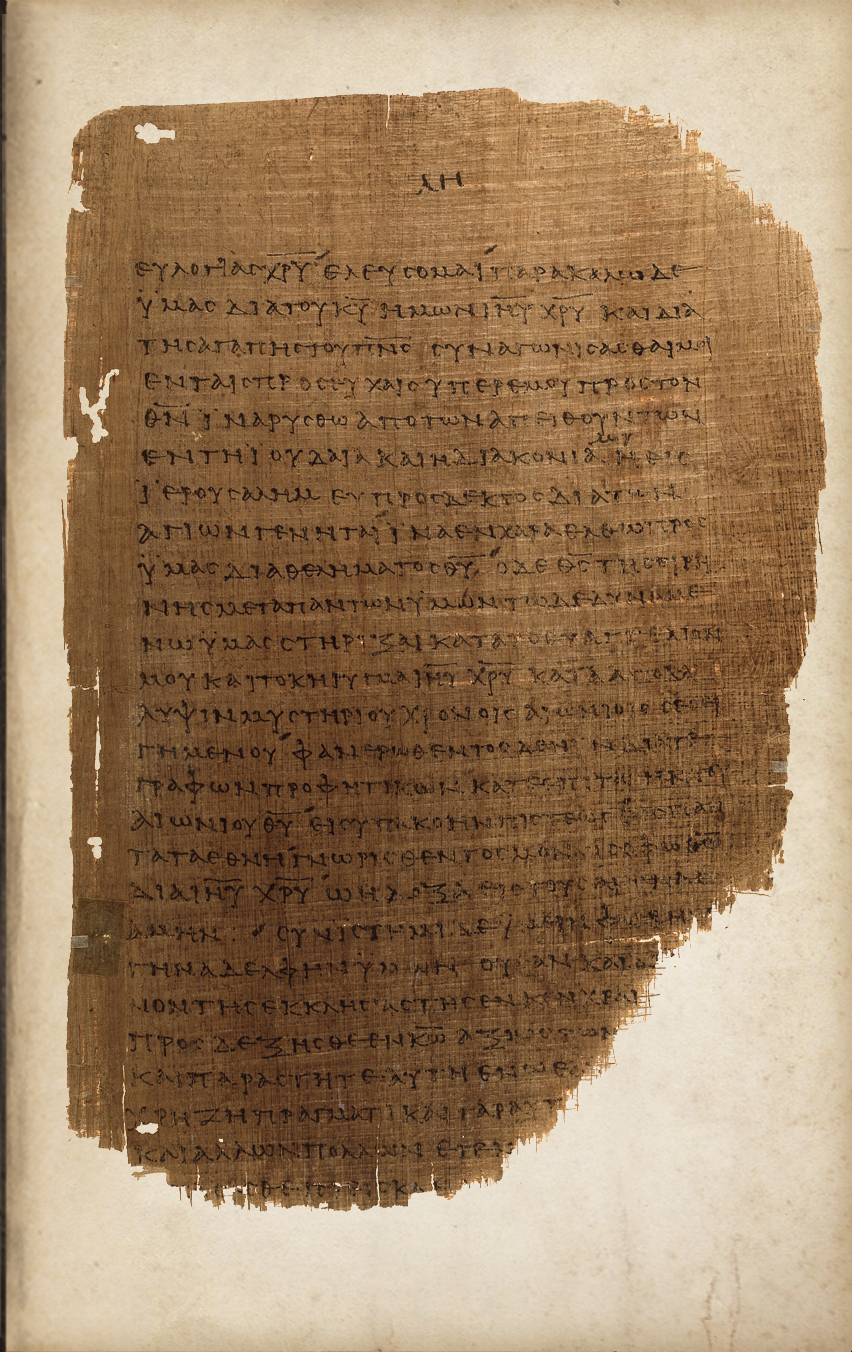 ΛΗ
ΕΥΛΟΓΙΑϹ ΧΡ̅Υ̅ ΕΛΕΥϹΟΜΑΙ ΠΑΡΑΚΑΛΩ ΔΕ
ΫΜΑϹ ΔΙΑ ΤΟΥ Κ̅Υ̅ ΗΜΩΝ ΙΗ̅Υ̅ ΧΡ̅Υ̅ ΚΑΙ ΔΙΑ
ΤΗϹ ΑΓΑΠΗϹ ΤΟΥ ΠΝ̅Ϲ̅ ϹΥΝΑΓΩΝΙϹΑϹΘΑΙ ΜΟΙ
ΕΝ ΤΑΙϹ ΠΡΟϹΕΥΧΑΙϹ ΥΠΕΡ ΕΜΟΥ ΠΡΟϹ ΤΟΝ
Θ̅Ν̅ ΪΝΑ ΡΥϹΘΩ ΑΠΟ ΤΩΝ ΑΠΕΙΘΟΥΝΤΩΝ
ΕΝ ΤΗ ΪΟΥΔΑΙΑ ΚΑΙ Η ΔΙΑΚΟΝΙΑ ΜΟΥ Η ΕΙϹ
ΪΕΡΟΥϹΑΛΗΜ ΕΥΠΡΟϹΔΕΚΤΟϹ ΔΙΑ ΤΩΝ
ΑΓΙΩΝ ΓΕΝΗΤΑΙ ΪΝΑ ΕΝ ΧΑΡΑ ΕΛΘΩ ΠΡΟϹ
ΫΜΑϹ ΔΙΑ ΘΕΛΗΜΑΤΟϹ Θ̅Υ̅ Ο ΔΕ Θ̅Ϲ̅ ΤΗϹ ΕΙΡΗ
ΝΗϹ ΜΕΤΑ ΠΑΝΤΩΝ ΫΜΩΝ ΤΩ ΔΕ ΔΥΝΑΜΕ
ΝΩ ΫΜΑϹ ϹΤΗΡΙΞΑΙ ΚΑΤΑ ΤΟ ΕΥΑΓΓΕΛΙΟΝ
ΜΟΥ ΚΑΙ ΤΟ ΚΗΡΥΓΜΑ ΙΗ̅Υ̅ ΧΡ̅Υ̅ ΚΑΤΑ ΑΠΟΚΑ
ΛΥΨΙΝ ΜΥϹΤΗΡΙΟΥ ΧΡΟΝΟΙϹ ΑΙΩΝΙΟΙϹ ϹΕϹΕΙ
ΓΗΜΕΝΟΥ ΦΑΝΕΡΩΘΕΝΤΟϹ ΔΕ ΝΥΝ ΔΙΑ ΤΕ
ΓΡΑΦΩΝ ΠΡΟΦΗΤΙΚΩΝ ΚΑΤ ΕΠΙΤΑΓΗΝ ΤΟΥ
ΑΙΩΝΙΟΥ Θ̅Υ̅ ΕΙϹ ΥΠΑΚΟΗΝ ΠΙϹΤΕΩϹ ΕΙϹ ΠΑΝ
ΤΑ ΤΑ ΕΘΝΗ ΓΝΩΡΙϹΘΕΝΤΟϹ ΜΟΝΩ ϹΟΦΩ Θ̅Ω̅
ΔΙΑ ΙΗ̅Υ̅ ΧΡ̅Υ̅ Ω Η ΔΟΞΑ ΕΙϹ ΤΟΥϹ ΑΙΩΝΑϹ
ΑΜΗΝ ϹΥΝΙϹΤΗΜΙ ΔΕ ΫΜΕΙΝ ΦΟΙΒΗΝ
ΤΗΝ ΑΔΕΛΦΗΝ ΫΜΩΝ ΟΥϹΑΝ ΚΑΙ ΔΙΑΚΟ
ΝΟΝ ΤΗϹ ΕΚΚΛΗϹΙΑϹ ΤΗϹ ΕΝ ΚΕΝΧΡΕΑΙ
ΠΡΟϹΔΕΞΗϹΘΕ ΕΝ Κ̅Ω̅ ΑΞΙΩϹ ΤΩΝ
ΚΑΙ ΠΑΡΑϹΤΗΤΕ ΑΥΤΗ ΕΝ Ω Ε
ΧΡΗΖΗ ΠΡΑΓΜΑΤΙ ΚΑΙ ΓΑΡ ΑΥΤ
ΚΑΙ ΑΛΛΩΝ ΠΟΛΛΩΝ ΕΓΕΝ